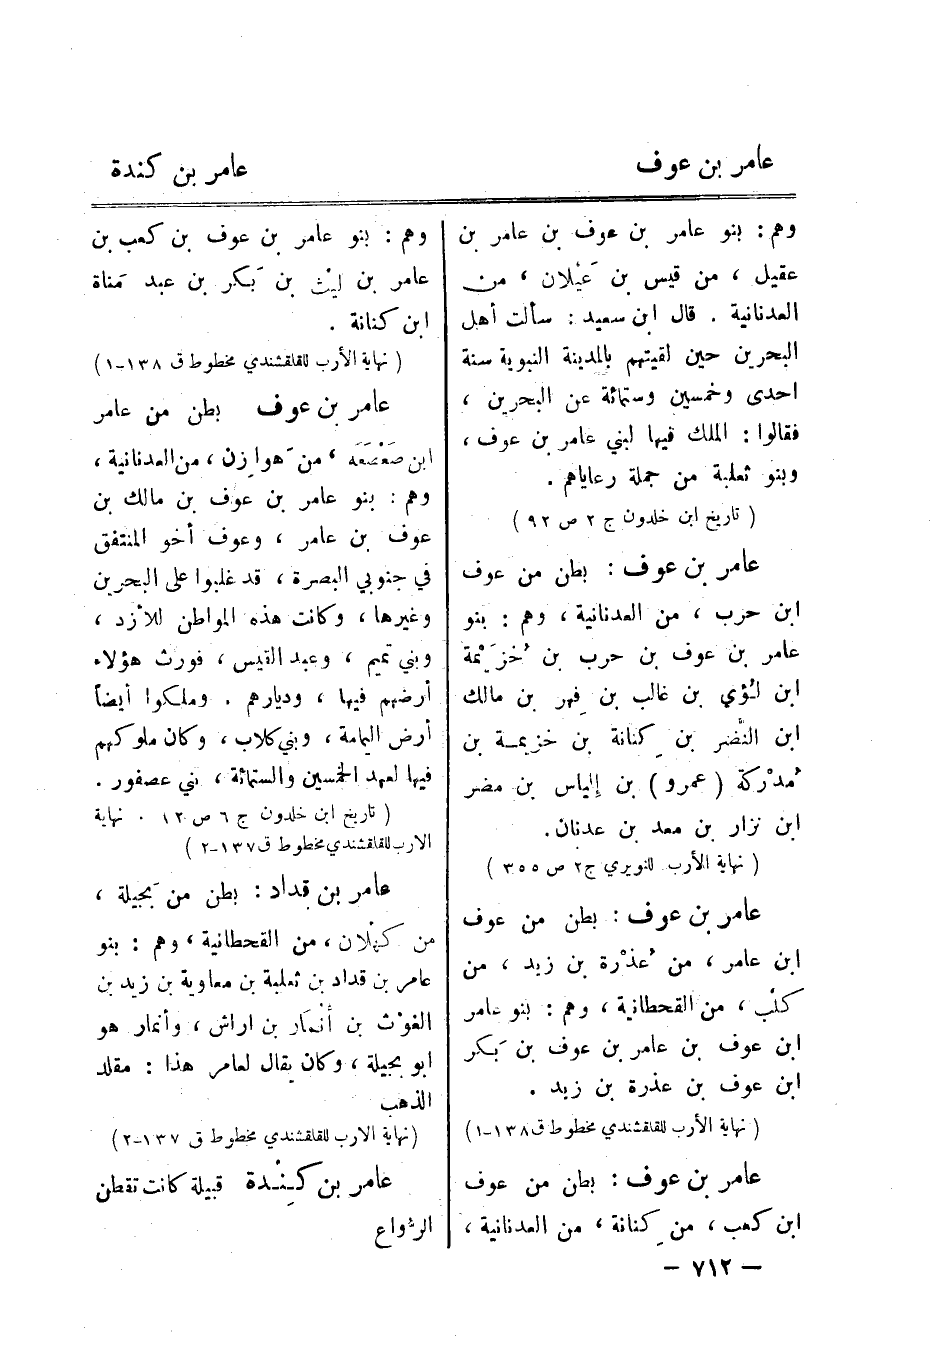 عامر بن عوف
عامر بن كندة
وهم : بنو عامر بن عوف بن عامر بن
عقيل ، من قيس بن عَيْلان ، من
العدنانية . قال ابن سعيد : سألت أهل
البحرين حين لقيتهم بالمدينة النبوية سنة
احدى وخمسين وستمائة عن البحرين ،
فقالوا : الملك فيها لبني عامر بن عوف ،
وبنو ثعلبة من جملة رعاياهم .
( تاريخ ابن خلدون ج ٢ ص ٩٢ )
عامر بن عوف : بطن من عوف
ابن حرب ، من العدنانية ، وهم : بنو
عامر بن عوف بن حرب بن خُزَيْمة
ابن لُؤي بن غالب بن فِهر بن مالك
ابن النَّضر بن كِنانة بن خزيمة بن
مُدْركة ( عمرو ) بن إلياس بن مضر
ابن نزار بن معد بن عدنان .
( نهاية الأرب للنويري ج٢ ص ٣٥٥ )
عامر بن عوف : بطن من عوف
ابن عامر ، من عُذْرة بن زيد ، من
كلْب ، من القحطانية ، وهم : بنو عامر
ابن عوف بن عامر بن عوف بن بَكر
ابن عوف بن عذرة بن زيد .
( نهاية الأرب للقلقشندي مخطوط ق١٣٨-١)
عامر بن عوف : بطن من عوف
ابن كعب ، من كِنانة ، من العدنانية ،
وهم : بنو عامر بن عوف بن كعب بن
عامر بن ليْث بن بَكر بن عبد مَناة
ابن كنانة .
( نهاية الأرب للقلقشندي مخطوط ق ١٣٨-١)
عامر بن عوف بطن من عامر
ابن صَعْصَعَة ، من هَوازِن ، من العدنانية ،
وهم : بنو عامر بن عوف بن مالك بن
عوف بن عامر ، وعوف أخو المنتفق
في جنوبي البصرة ، قد غلبوا على البحرين
وغيرها ، وكانت هذه المواطن للأزد ،
وبني تميم ، وعبد القيس ، فورث هؤلاء
أرضهم فيها ، وديارهم . وملكوا أيضاً
أرض اليمامة ، وبني كلاب ، وكان ملوكهم
فيها لعهد الخمسين والستمائة ، بني عصفور .
( تاريخ ابن خلدون ج ٦ ص ١٢ . نهاية
الارب للقلقشندي مخطوط ق١٣٧-٢ )
عامر بن قداد : بطن من بَجيلة ،
من كَهْلان ، من القحطانية ، وهم : بنو
عامر بن قداد بن ثعلبة بن معاوية بن زيد بن
الغوْث بن أنْمار بن اراش ، وأنمار هو
ابو بجيلة ، وكان يقال لعامر هذا : مقلد
الذهب
(نهاية الارب للقلقشندي مخطوط ق ١٣٧-٢)
عامر بن كِنْدة قبيلة كانت تقطن
الرُواع
— ٧١٢ —